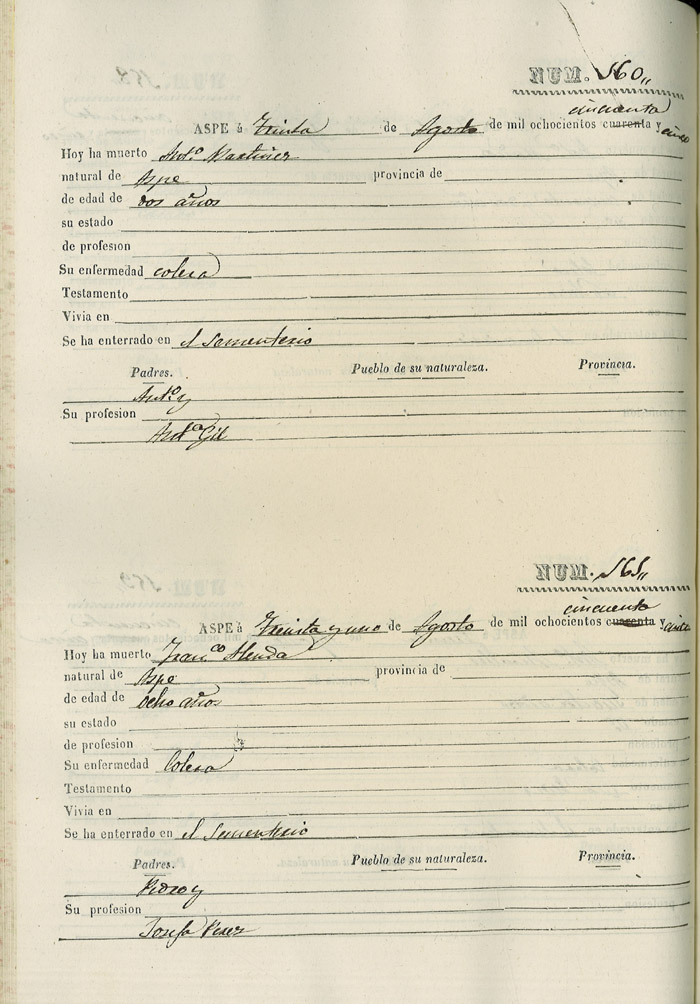 NUM. 560
cincuenta
ASPE á Treinta de Agosto de mil ochocientos cuarenta y cinco
Hoy ha muerto Antº Martinez
natural de Aspe provincia de
de edad de dos años
su estado
de profesion
Su enfermedad colera
Testamento
Vivia en
Se ha enterrado en el Sementerio
Padres. Pueblo de su naturaleza. Provincia.
Antº y
Su profesion
Antª Gil
NUM. 561
cincuenta
ASPE á Treinta y uno de Agosto de mil ochocientos cuarenta y cinco
Hoy ha muerto Franco
natural de Aspe provincia de
de edad de ocho años
su estado
de profesion
Su enfermedad Colera
Testamento
Vivia en
Se ha enterrado en el Sementerio
Padres. Pueblo de su naturaleza. Provincia.
y
Su profesion
Josefa Perez